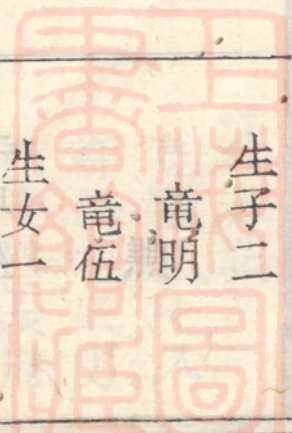 生子二
竜明
竜伍
生女一